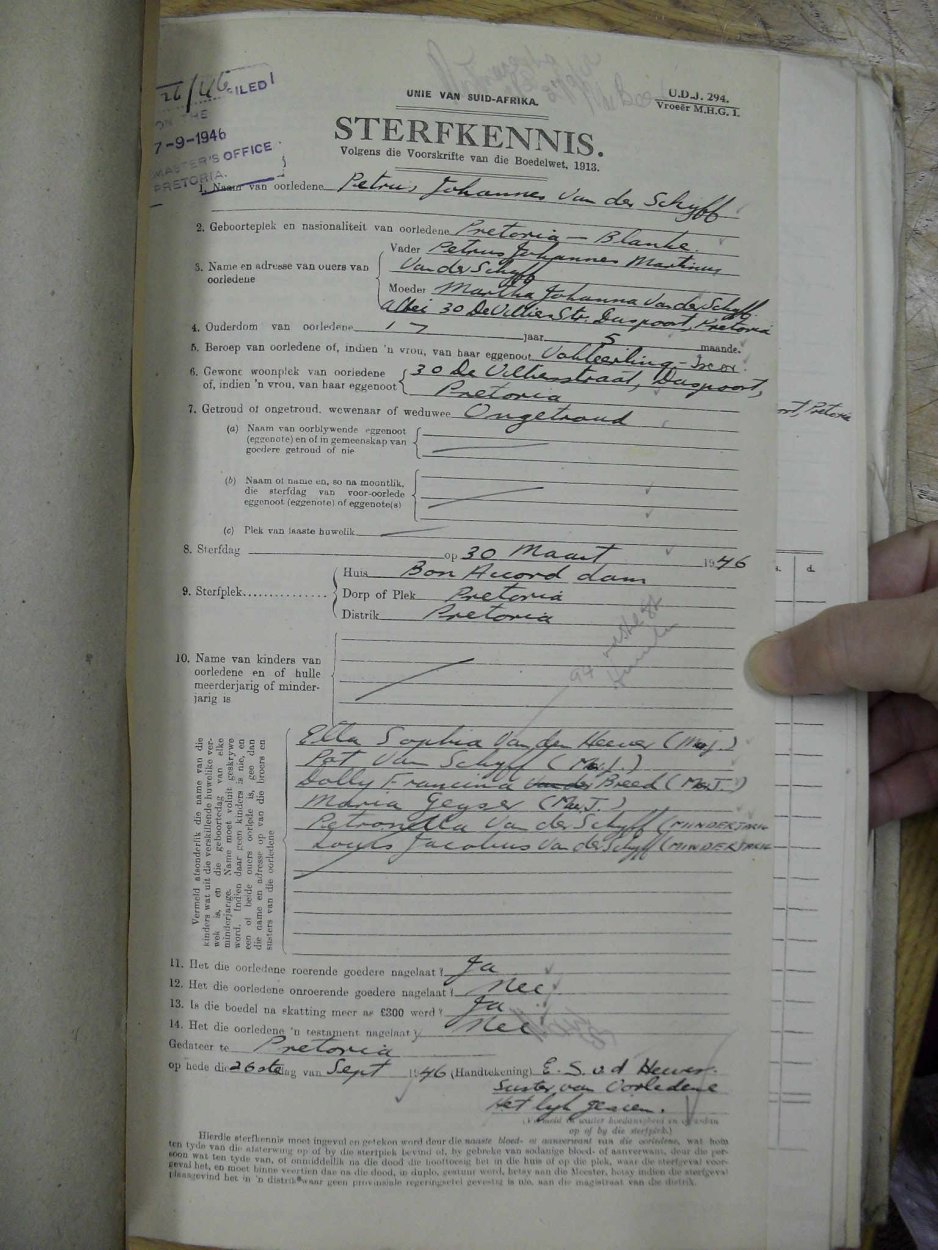 26/46
FILED
ON THE
7-9-1946
MASTER'S OFFICE
PRETORIA.
UNIE VAN SUID-AFRIKA.
U.D.J. 294.
Vroeër M.H.G. 1.
STERFKENNIS.
Volgens die Voorskrifte van die Boedelwet, 1913.
1. Naam van oorledene Petrus Johannes Van der Schyff
2. Geboorteplek en nasionaliteit van oorledene Pretoria — Blanke.
3. Name en adresse van ouers van oorledene
Vader Petrus Johannes Martinus
Van der Schyff
Moeder Martha Johanna Van der Schyff
albei 30 De Villier Str. Daspoort, Pretoria
4. Ouderdom van oorledene 17 jaar 5 maande.
5. Beroep van oorledene of, indien 'n vrou, van haar eggenoot Vakleerling - Iscor.
6. Gewone woonplek van oorledene of, indien 'n vrou, van haar eggenoot
30 De Villiersstraat, Daspoort,
Pretoria
ort, Pretoria
7. Getroud of ongetroud, wewenaar of weduwee Ongetroud
(a) Naam van oorblywende eggenoot
(eggenote) en of in gemeenskap van
goedere getroud of nie
(b) Naam of name en, so na moontlik,
die sterfdag van voor-oorlede
eggenoot (eggenote) of eggenote(s)
(c) Plek van laaste huwelik
8. Sterfdag op 30 Maart 1946
9. Sterfplek
Huis Bon Accord dam
Dorp of Plek Pretoria
Distrik Pretoria
10. Name van kinders van
oorledene en of hulle
meerderjarig of minder-
jarig is
Vermeld afsonderlik die name van die
kinders wat uit die verskillende huwelike ver-
wek is, en die geboortedag van elke
minderjarige. Name moet voluit geskrywe
word. Indien daar geen kinders is nie, en
een of beide ouers oorlede is, gee dan
die name en adresse op van die broers en
susters van die oorledene
Ella Sophia Van den Heever (Maj.)
Pat. Van Schyff (Maj.)
Dolly Francina Breed (Mer J.)
Maria Geyser (Mer J.)
Petronella Van der Schyff (MINDERJARIG
Louis Jacobus Van der Schyff (MINDERJARIG
11. Het die oorledene roerende goedere nagelaat? Ja
12. Het die oorledene onroerende goedere nagelaat? Nee
13. Is die boedel na skatting meer as £300 werd? Ja
14. Het die oorledene 'n testament nagelaat? Nee
Gedateer te Pretoria
op hede die 26ste dag van Sept 1946 (Handtekening) E. S. v d Heever
Suster van Oorledene
Het lyk gesien.
op of by die sterfplek.)
Hierdie sterfkennis moet ingevul en geteken word deur die naaste bloed- of aanverwant van die oorledene, wat hom
ten tyde van die afsterwing op of by die sterfplek bevind of, by gebreke van sodanige bloed- of aanverwant, deur die per-
soon wat ten tyde van, of onmiddellik na die dood die hooftoesig het in die huis of op die plek, waar die sterfgeval voor-
geval het, en moet binne veertien dae na die dood, in duplo, gestuur word, hetsy aan die Meester, hetsy indien die sterfgeval
plaasgevind het in 'n distrik waar geen provinsiale regeringsetel gevestig is nie, aan die magistraat van die distrik.